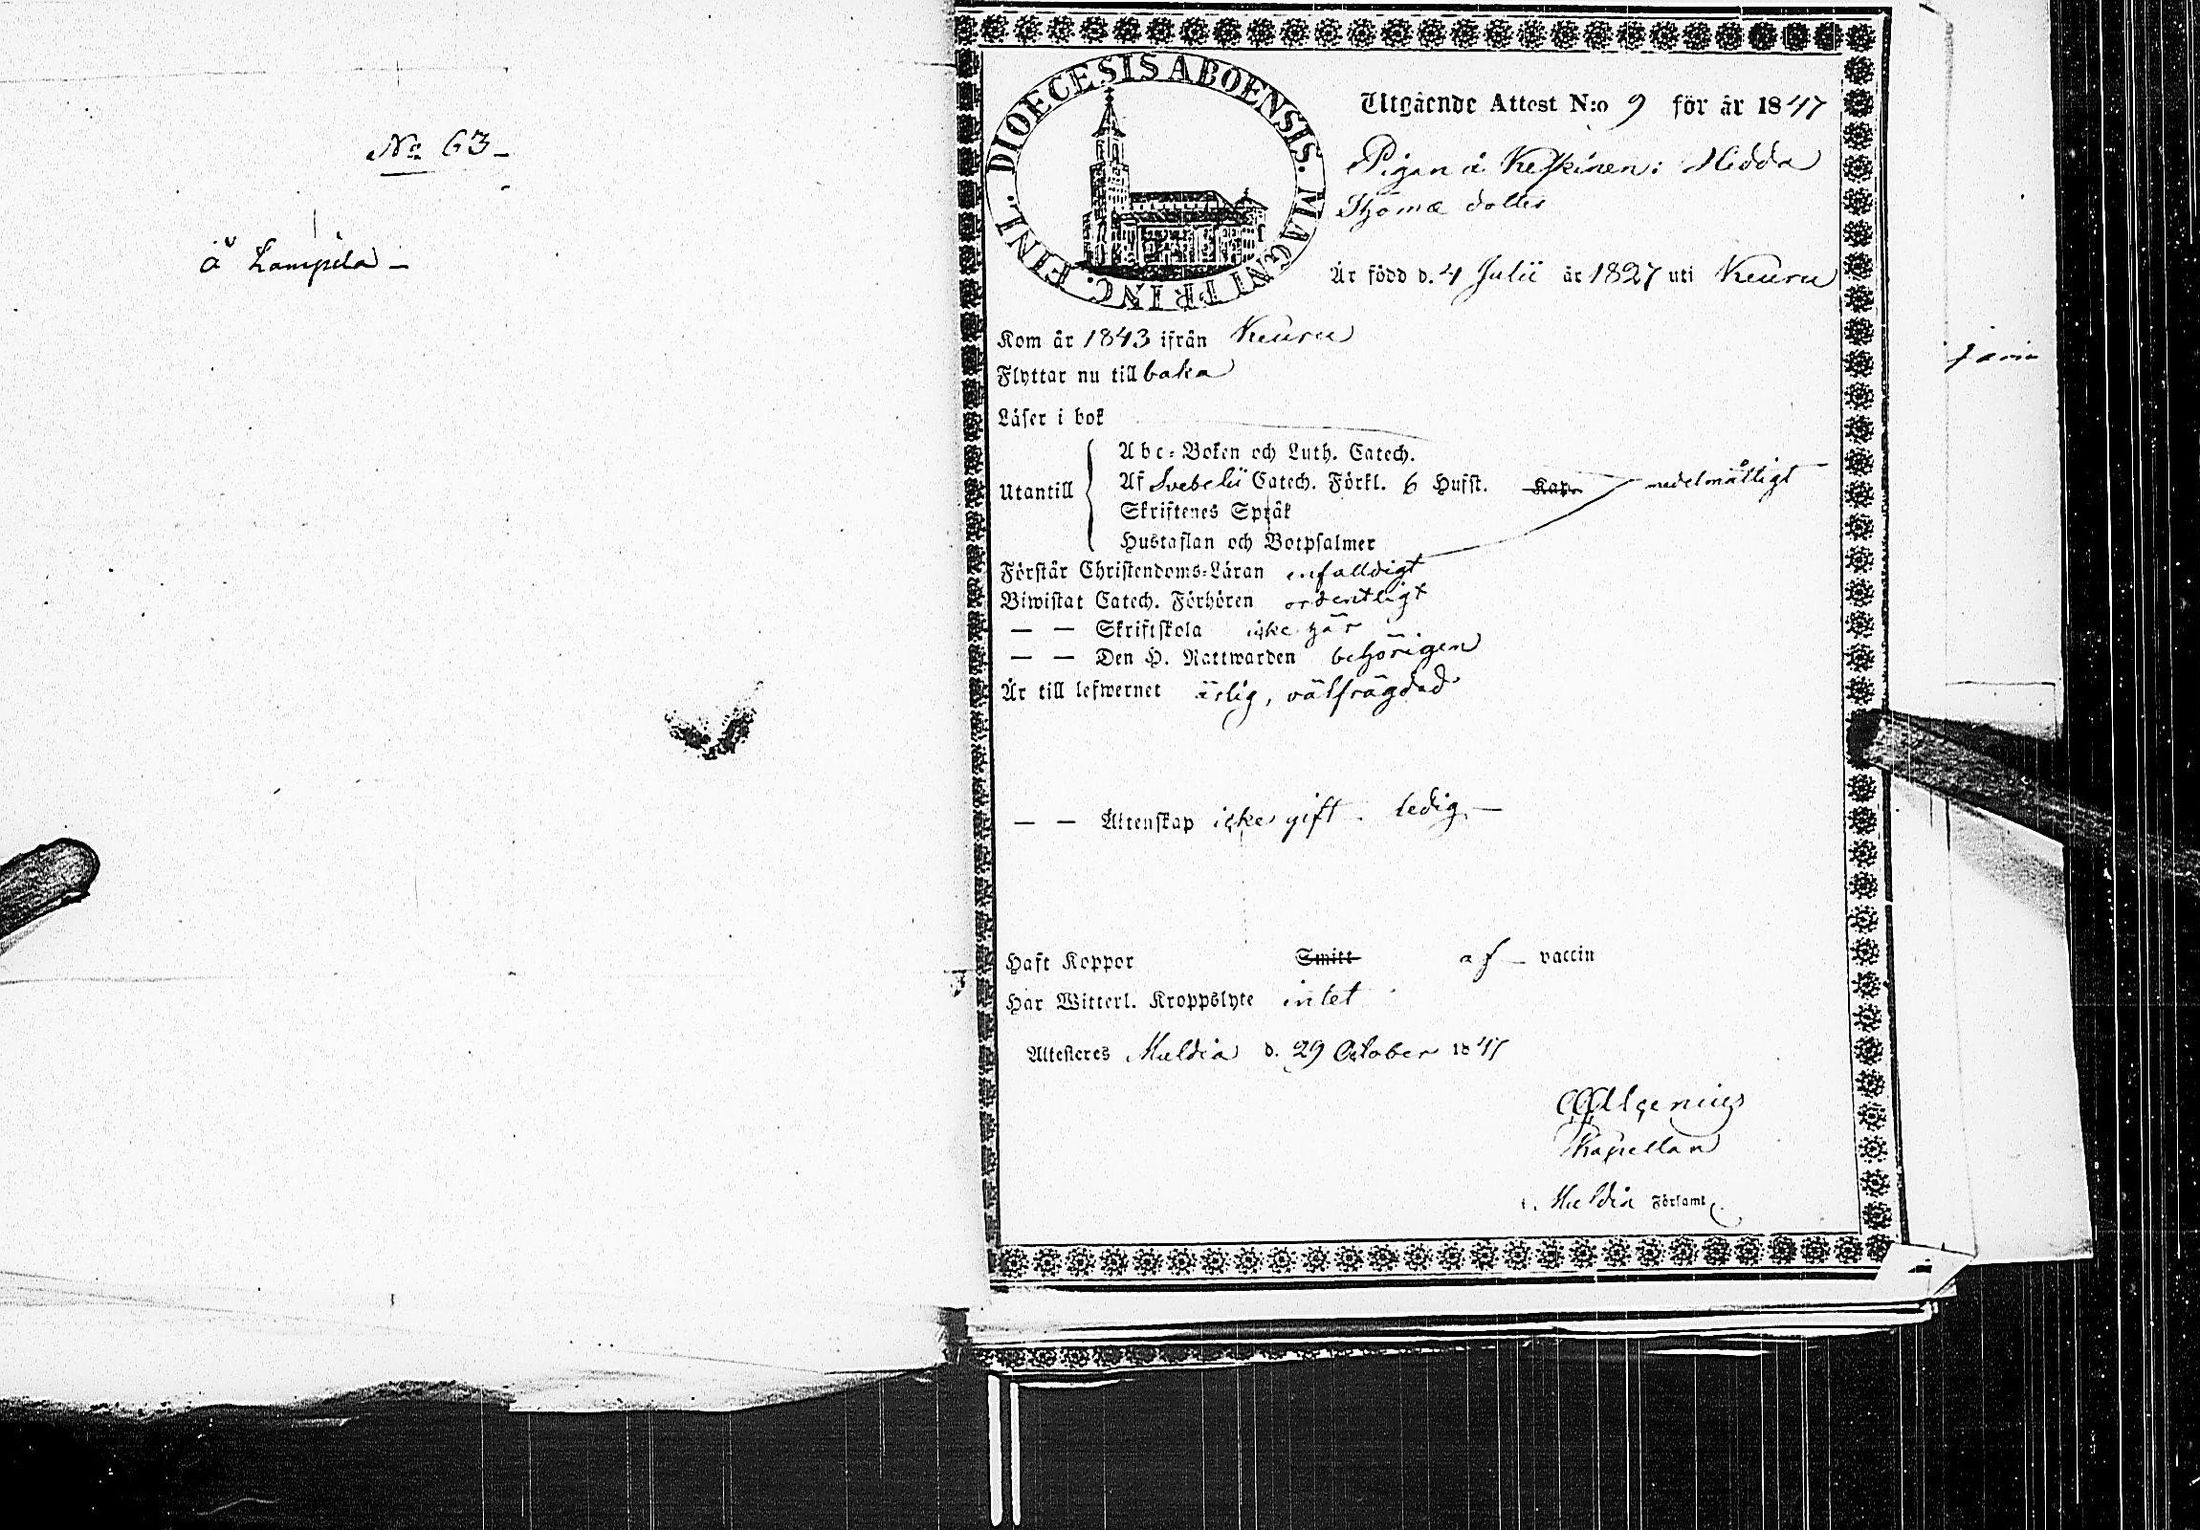 No 63
å Lampila
DIOECESIS ABOENSIS. MAGNI PRINC. FINL.
Utgående Attest N:o 9 för år 1847
Pigan å Keskinen: Hedda
Thomæ dotter
Är född d. 4 Julii år 1827 uti Keuru
Kom år 1843 ifrån Keuru
Flyttar nu till baka
Läser i bok
Utantill
Abc-Boken och Luth. Catech.
Af Svebelii Catech. Förkl. 6 Hufst. Kap. medelmåttigt
Skriftenes Språk
Hustaflan och Botpsalmer
Förstår Christendoms-Läran enfalldigt
Biwistat Catech. Förhören ordentligt
— — Skriftskola icke här
— — Den H. Nattwarden behörigen
Är till lefwernet ärlig, välfrägdad
— — Äktenskap icke gift. ledig
Haft Koppor Smitt af vaccin
Har Witterl. Kroppslyte intet
Attesteres Muldia d. 29 October 1847
Kapellan
i Muldia Förlamt